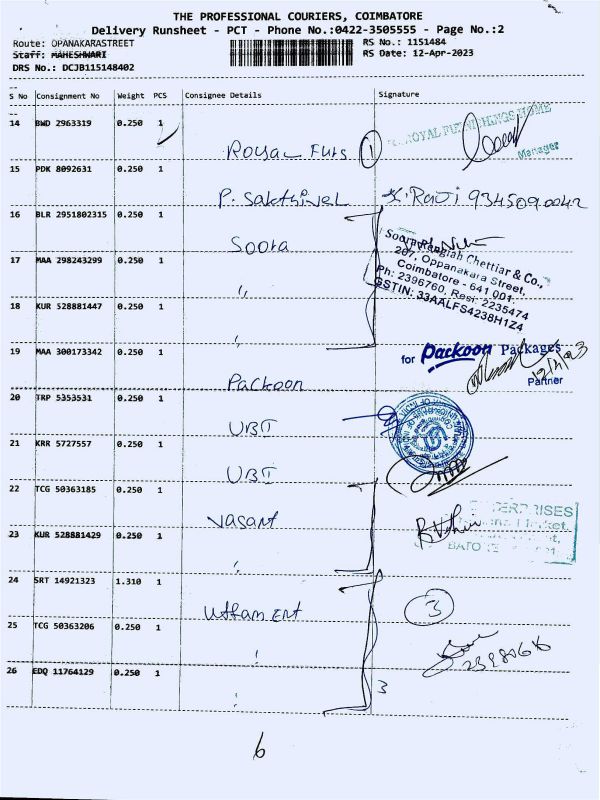 THE PROFESSIONAL COURIERS, COIMBATORE
Delivery Runsheet - PCT - Phone No.:0422-3505555 - Page No.:2
Route: OPANAKARASTREET RS No.: 1151484
Staff: MAHESHWARI RS Date: 12-Apr-2023
DRS No.: DCJB115148402
S No Consignment No Weight PCS Consignee Details Signature
14 BWD 2963319 0.250 1 Royal Furs 1 ROYAL FURNISHINGS HOME
Manager
15 PDK 8092631 0.250 1 P. Sakthivel K. Ravi 9345090042
16 BLR 2951802315 0.250 1 Soora
Soora Rengiah Chettiar & Co.,
207, Oppanakara Street,
Coimbatore - 641 001.
Ph: 2396760, Resi: 2235474
GSTIN: 33AALFS4238H1Z4
17 MAA 298243299 0.250 1 "
18 KUR 528881447 0.250 1 "
19 MAA 300173342 0.250 1 Packoon for Packoon Packages
12/4/23
Partner
20 TRP 5353531 0.250 1 UBI
21 KRR 5727557 0.250 1 UBI
22 TCG 50363185 0.250 1 Vasant
ENTERPRISES
23 KUR 528881429 0.250 1 "
24 SRT 14921323 1.310 1 Uttam Ent 3
25 TCG 50363206 0.250 1 "
26 EDQ 11764129 0.250 1 " 3
6